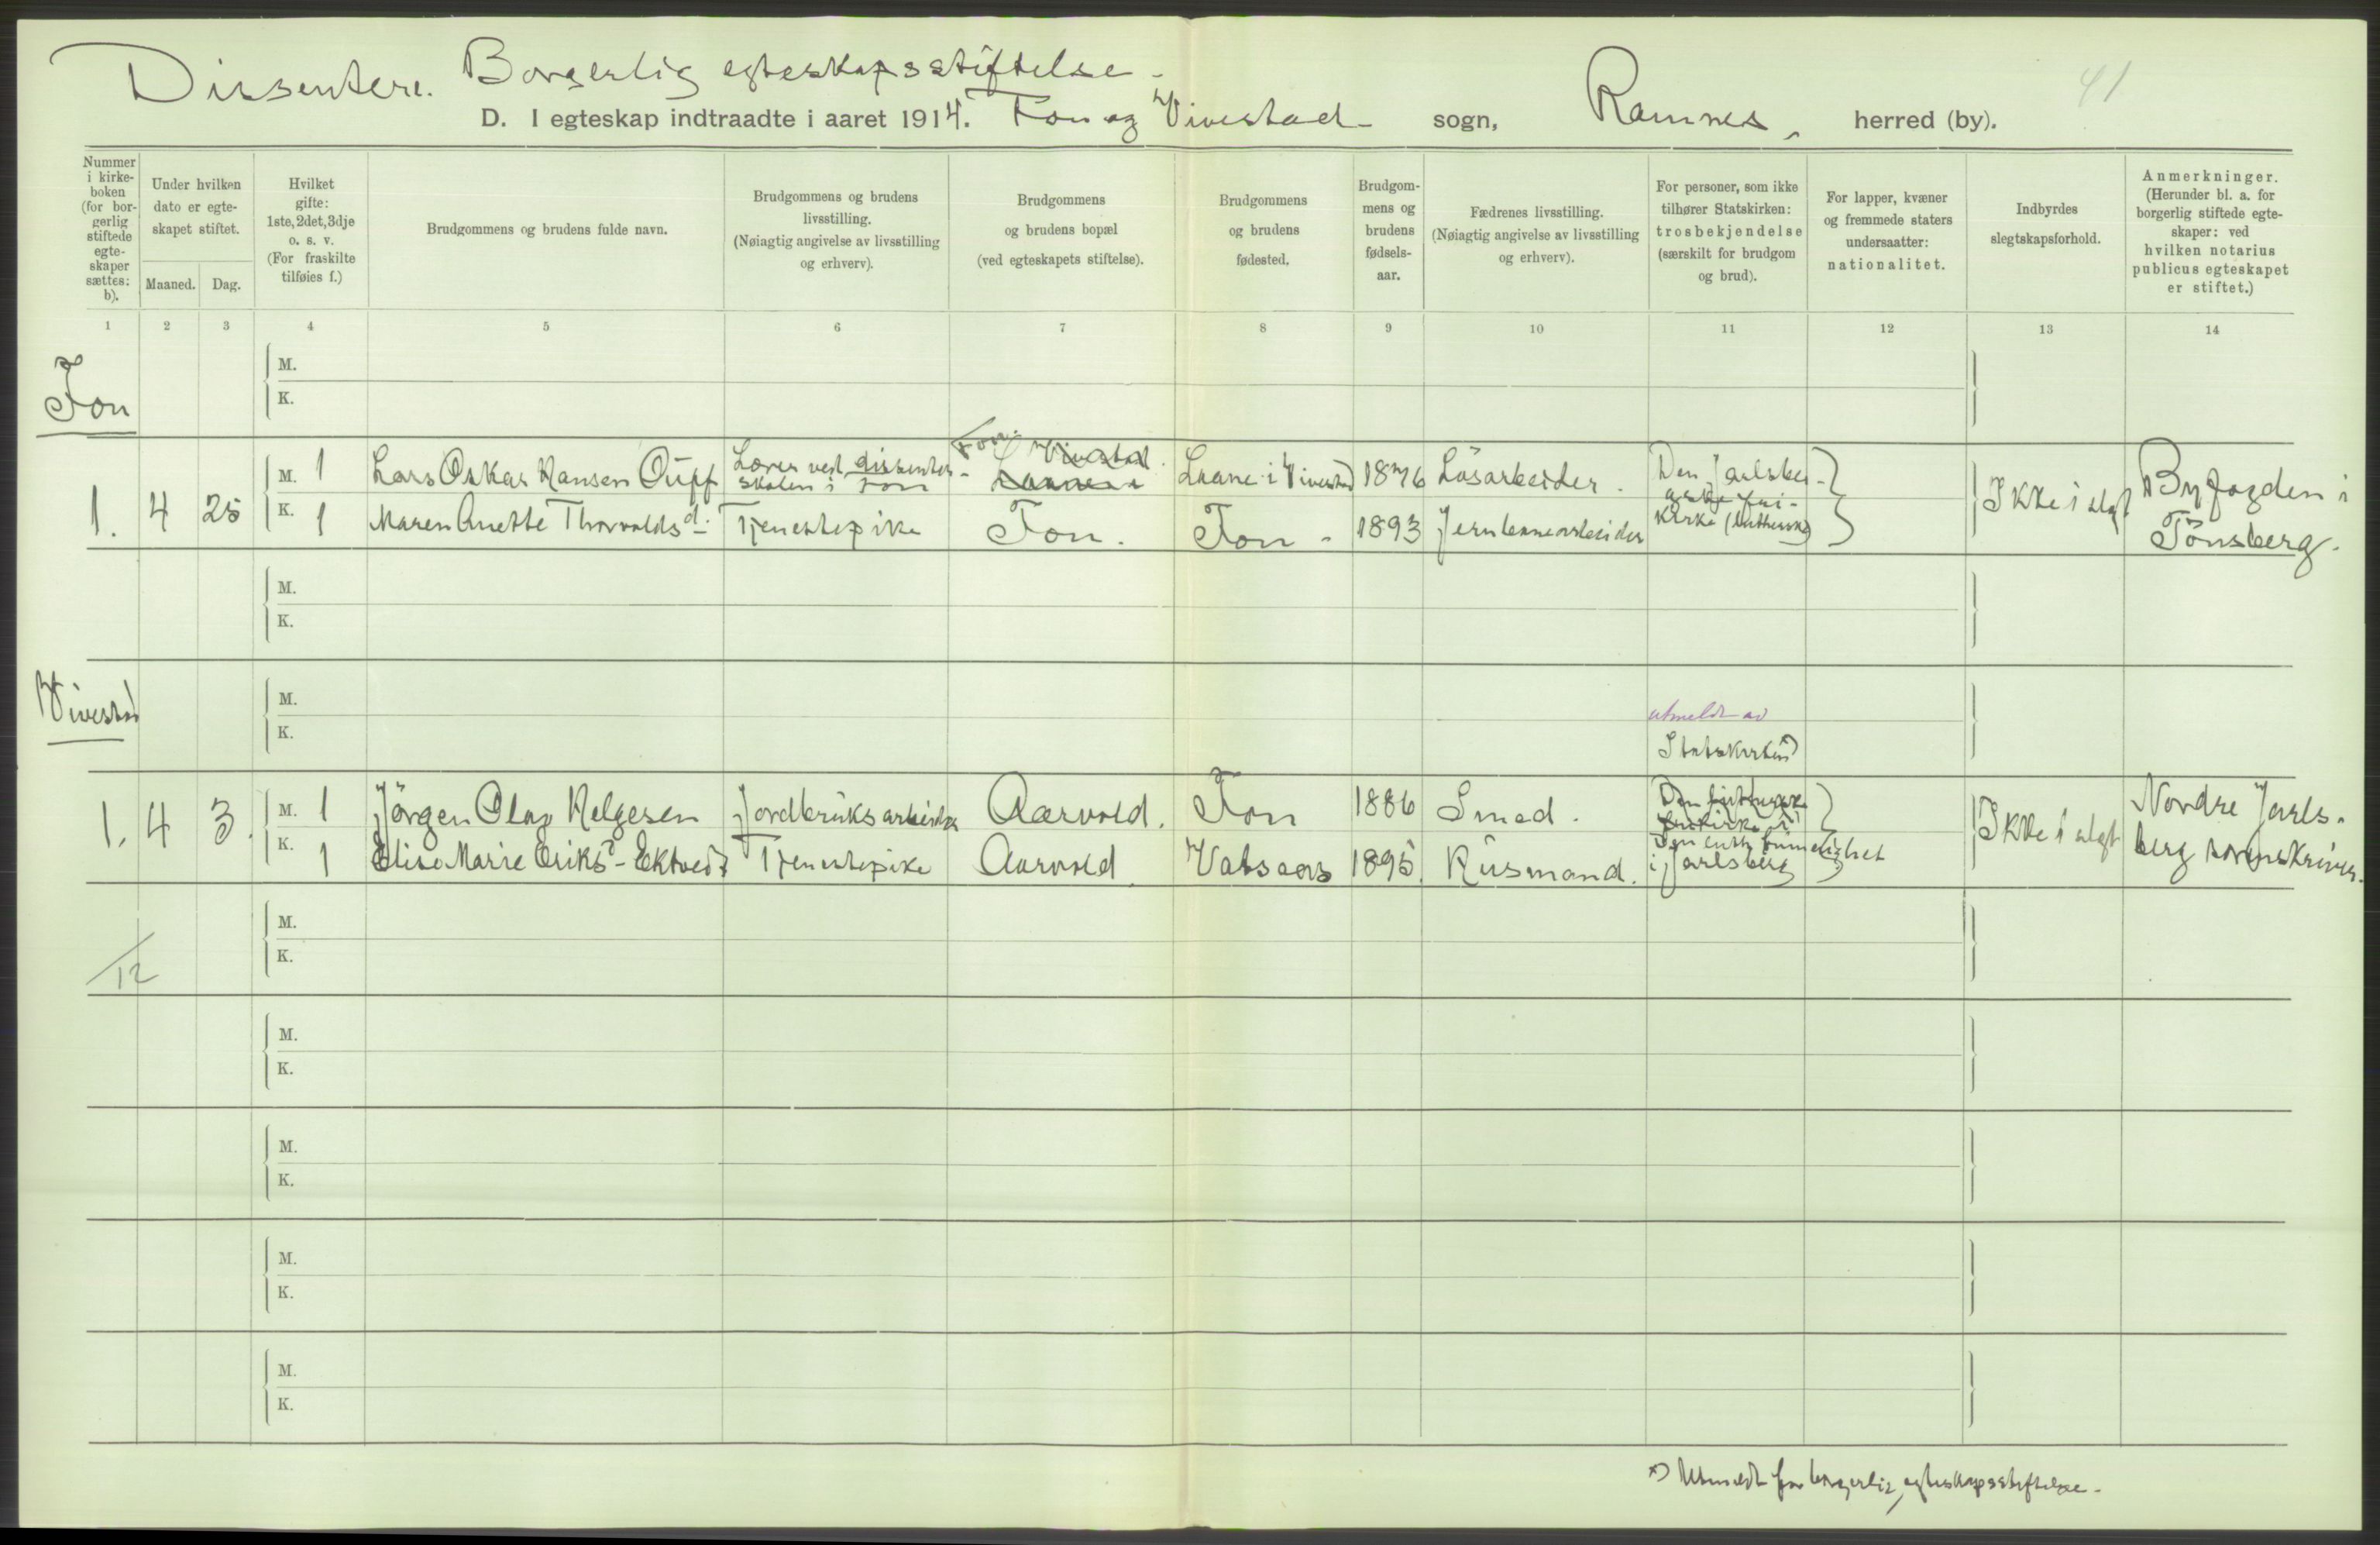 Dissentere. Borgerlig egteskapsstiftelse.
D. I egteskap indtraadte i aaret 1914. Fon og Vivestad sogn, Ramnes, herred (by). 41
Nummer i kirke-boken (for bor-gerlig stiftede egte-skaper sættes: b).
Under hvilken dato er egte-skapet stiftet.
Maaned. Dag.
Hvilket gifte: 1ste, 2det, 3dje o. s. v. (For fraskilte tilføies f.)
Brudgommens og brudens fulde navn.
Brudgommens og brudens livsstilling. (Nøiagtig angivelse av livsstilling og erhverv).
Brudgommens og brudens bopæl (ved egteskapets stiftelse).
Brudgommens og brudens fødested.
Brudgom-mens og brudens fødsels-aar.
Fædrenes livsstilling. (Nøiagtig angivelse av livsstilling og erhverv).
For personer, som ikke tilhører Statskirken: trosbekjendelse (særskilt for brudgom og brud).
For lapper, kvæner og fremmede staters undersaatter: nationalitet.
Indbyrdes slegtskapsforhold.
Anmerkninger. (Herunder bl. a. for borgerlig stiftede egte-skaper: ved hvilken notarius publicus egteskapet er stiftet.)
1 2 3 4 5 6 7 8 9 10 11 12 13 14
Fon
M.
K.
1. 4 25
M. 1 Lars Oskar Hansen Lærer ved dissenter-skolen i Fon Fon. Vivestad Laane i Vivestad 1876 Løsarbeider.
K. 1 Maren Anette Thorvaldsd. Tjenestepike Fon. Fon - 1893 Jernbanearbeider
Den Jarlsber-gske fri-kirke (luthersk)
Ikke i slegt
Byfogden i Tönsberg.
M.
K.
Vivestad
M.
K.
utmeldt av
Statskirken
1. 4 3.
M. 1 Jörgen Olav Helgesen Jordbruksarbeider Aarvold. Fon 1886 Smed.
K. 1 Elise Marie Eriksd- Tjenestepike Aarvold Vatsaas 1895. Husmand.
Den lutherske frikirke i
Den luth. frimenighet
i Jarlsberg
Ikke i slegt
Nordre Jarls-berg sorenskriver.
M.
K.
12
M.
K.
M.
K.
M.
K.
M.
K.
×) Utmeldt før borgerlig egteskapsstiftelse.